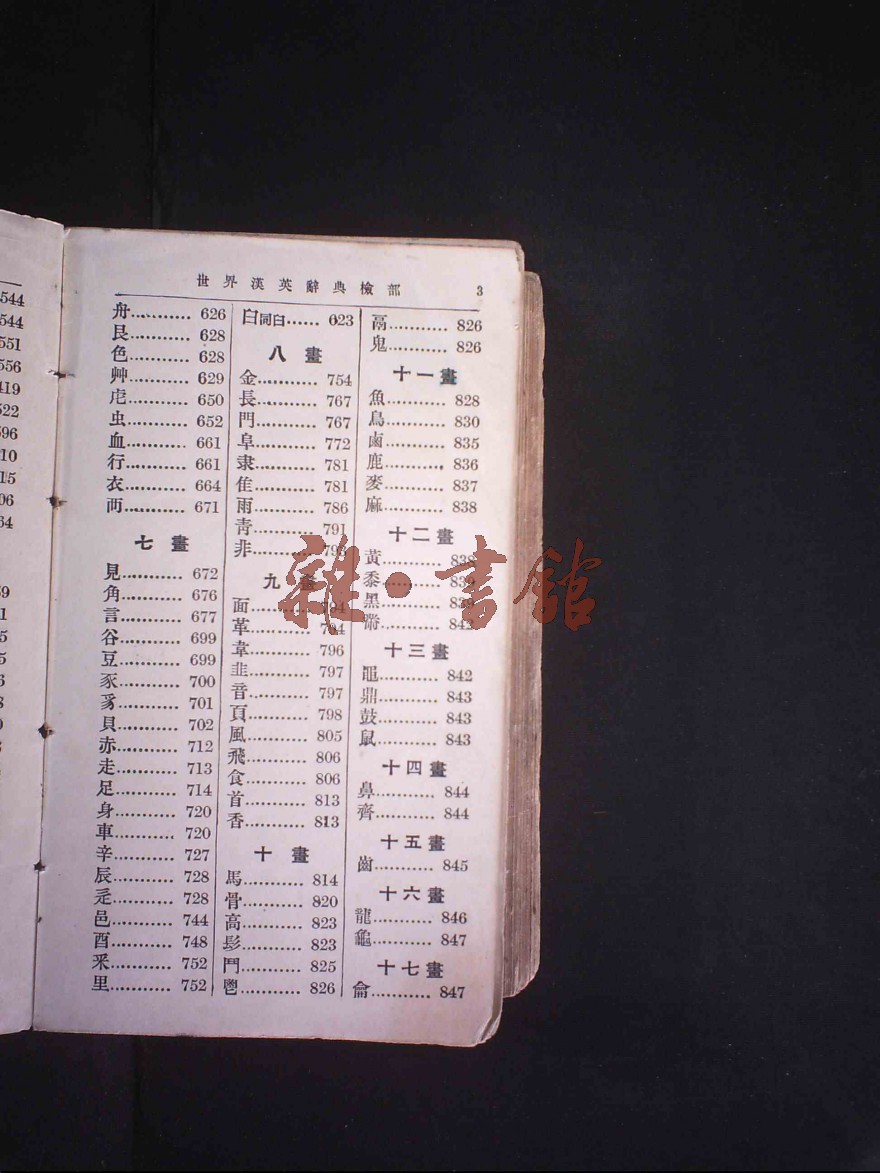 544
544
551
556
419
522
596
10
15
06
64
59
1
5
5
6
8
世界漢英辭典檢部 3
舟............ 626
艮............ 628
色............ 628
艸............ 629
虍............ 650
虫............ 652
血............ 661
行............ 661
衣............ 664
襾............ 671
七畫
見............ 672
角............ 676
言............ 677
谷............ 699
豆............ 699
豕............ 700
豸............ 701
貝............ 702
赤............ 712
走............ 713
足............ 714
身............ 720
車............ 720
辛............ 727
辰............ 728
辵............ 728
邑............ 744
酉............ 748
釆............ 752
里............ 752
臼同白...... 623
八畫
金............ 754
長............ 767
門............ 767
阜............ 772
隶............ 781
隹............ 781
雨............ 786
靑............ 791
非............ 793
九畫
面............ 794
革............ 794
韋............ 796
韭............ 797
音............ 797
頁............ 798
風............ 805
飛............ 806
食............ 806
首............ 813
香............ 813
十畫
馬............ 814
骨............ 820
高............ 823
髟............ 823
鬥............ 825
鬯............ 826
鬲............ 826
鬼............ 826
十一畫
魚............ 828
鳥............ 830
鹵............ 835
鹿............ 836
麥............ 837
麻............ 838
十二畫
黃............ 838
黍............ 839
黑............ 839
黹............ 842
十三畫
黽............ 842
鼎............ 843
鼓............ 843
鼠............ 843
十四畫
鼻............ 844
齊............ 844
十五畫
齒............ 845
十六畫
龍............ 846
龜............ 847
十七畫
龠............ 847
雜·書館